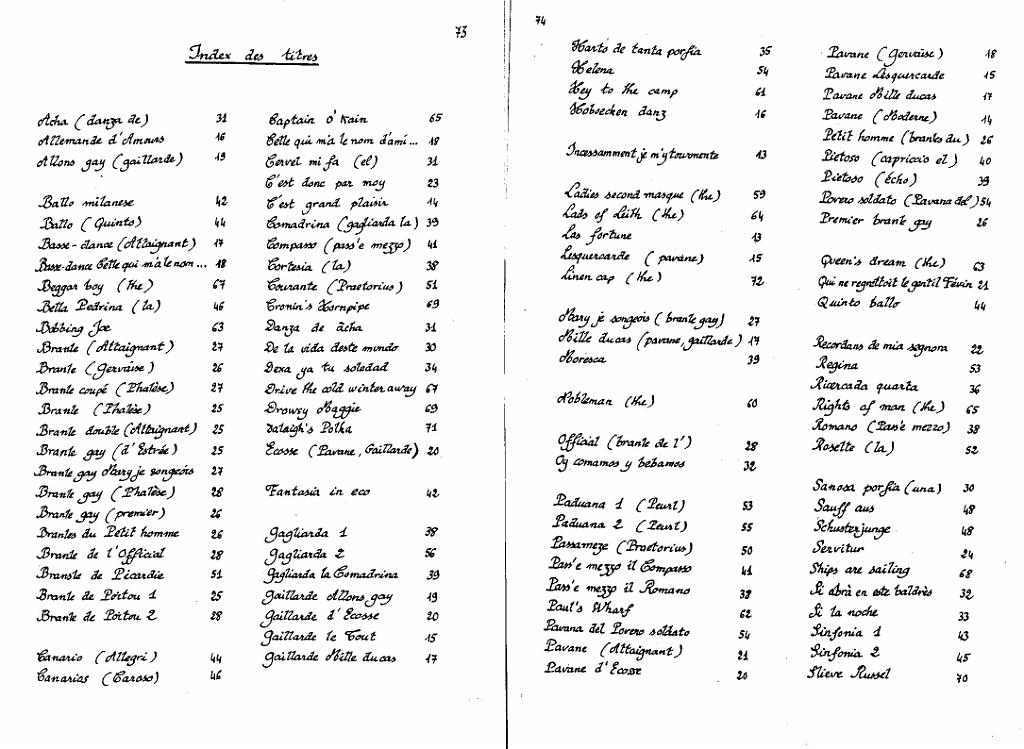 73
Index des titres
Acha (danza de) 31
Allemande d'Amours 16
Allons gay (gaillarde) 19
Ballo milanese 42
Ballo (Quinto) 44
Basse-dance (Attaignant) 17
Basse-dance Celle qui m'a le nom... 18
Beggar boy (the) 67
Bella Pedrina (la) 46
Bobbing Joe 63
Branle (Attaignant) 27
Branle (Gervaise) 26
Branle coupé (Phalèse) 27
Branle (Phalèse) 25
Branle double (Attaignant) 25
Branle gay (d'Estrée) 25
Branle gay Mary je songeois 27
Branle gay (Phalèse) 28
Branle gay (premier) 26
Branles du Petit homme 26
Branle de l'Official 28
Bransle de Picardie 51
Branle de Poitou 1 25
Branle de Poitou 2 28
Canario (Allegri) 44
Canarios (Caroso) 46
Captain O'Kain 65
Celle qui m'a le nom d'ami... 18
Cervel mi fa (el) 31
C'est donc par moy 23
C'est grand plaisir 14
Comadrina (gagliarda la) 39
Compasso (pass'e mezzo) 41
Cortesia (la) 38
Courante (Praetorius) 51
Cronin's Hornpipe 69
Danza de acha 31
De la vida deste mundo 30
Dexa ya tu soledad 34
Drive the cold winter away 67
Drowsy Maggie 69
Daleigh's Polka 71
Ecosse (Pavane, Gaillarde) 20
Fantasia in eco 42
Gagliarda 1 38
Gagliarda 2 56
Gagliarda la Comadrina 39
Gaillarde Allons gay 19
Gaillarde d'Ecosse 20
Gaillarde le Tout 15
Gaillarde Mille ducas 17
74
Harto de tanta porfia 35
Helena 54
Hey to the camp 61
Hoboecken danz 16
Incessamment je m'y tourmente 13
Ladies second masque (the) 59
Lads of Leith (the) 64
Las fortune 13
Lesquercarde (pavane) 15
Linen cap (the) 72
Mary je songeois (branle gay) 27
Mille ducas (pavane, gaillarde) 17
Moresca 39
Nobleman (the) 60
Official (branle de l') 28
Oy comamos y bebamos 32
Paduana 1 (Peurl) 53
Paduana 2 (Peurl) 55
Passameze (Praetorius) 50
Pass'e mezzo il Compasso 41
Pass'e mezzo il Romano 38
Paul's Wharf 62
Pavana del Povero soldato 54
Pavane (Attaignant) 21
Pavane d'Ecosse 20
Pavane (Gervaise) 18
Pavane Lesquercarde 15
Pavane Mille ducas 17
Pavane (Moderne) 14
Petit homme (branles du) 26
Pietoso (capriccio el) 40
Pietoso (écho) 39
Povero soldato (Pavana del) 54
Premier branle gay 26
Queen's dream (the) 63
Qui ne regrettoit le gentil Févin 21
Quinto ballo 44
Recordans de mia segnora 22
Regina 53
Ricercada quarta 36
Rights of man (the) 65
Romano (Pass'e mezzo) 38
Rosette (la) 52
Sanosa porfia (una) 30
Sauff aus 48
Schusterjunge 48
Servitur 24
Ships are sailing 68
Si abrà en este baldrès 32
Si la noche 33
Sinfonia 1 43
Sinfonia 2 45
Slieve Russel 70